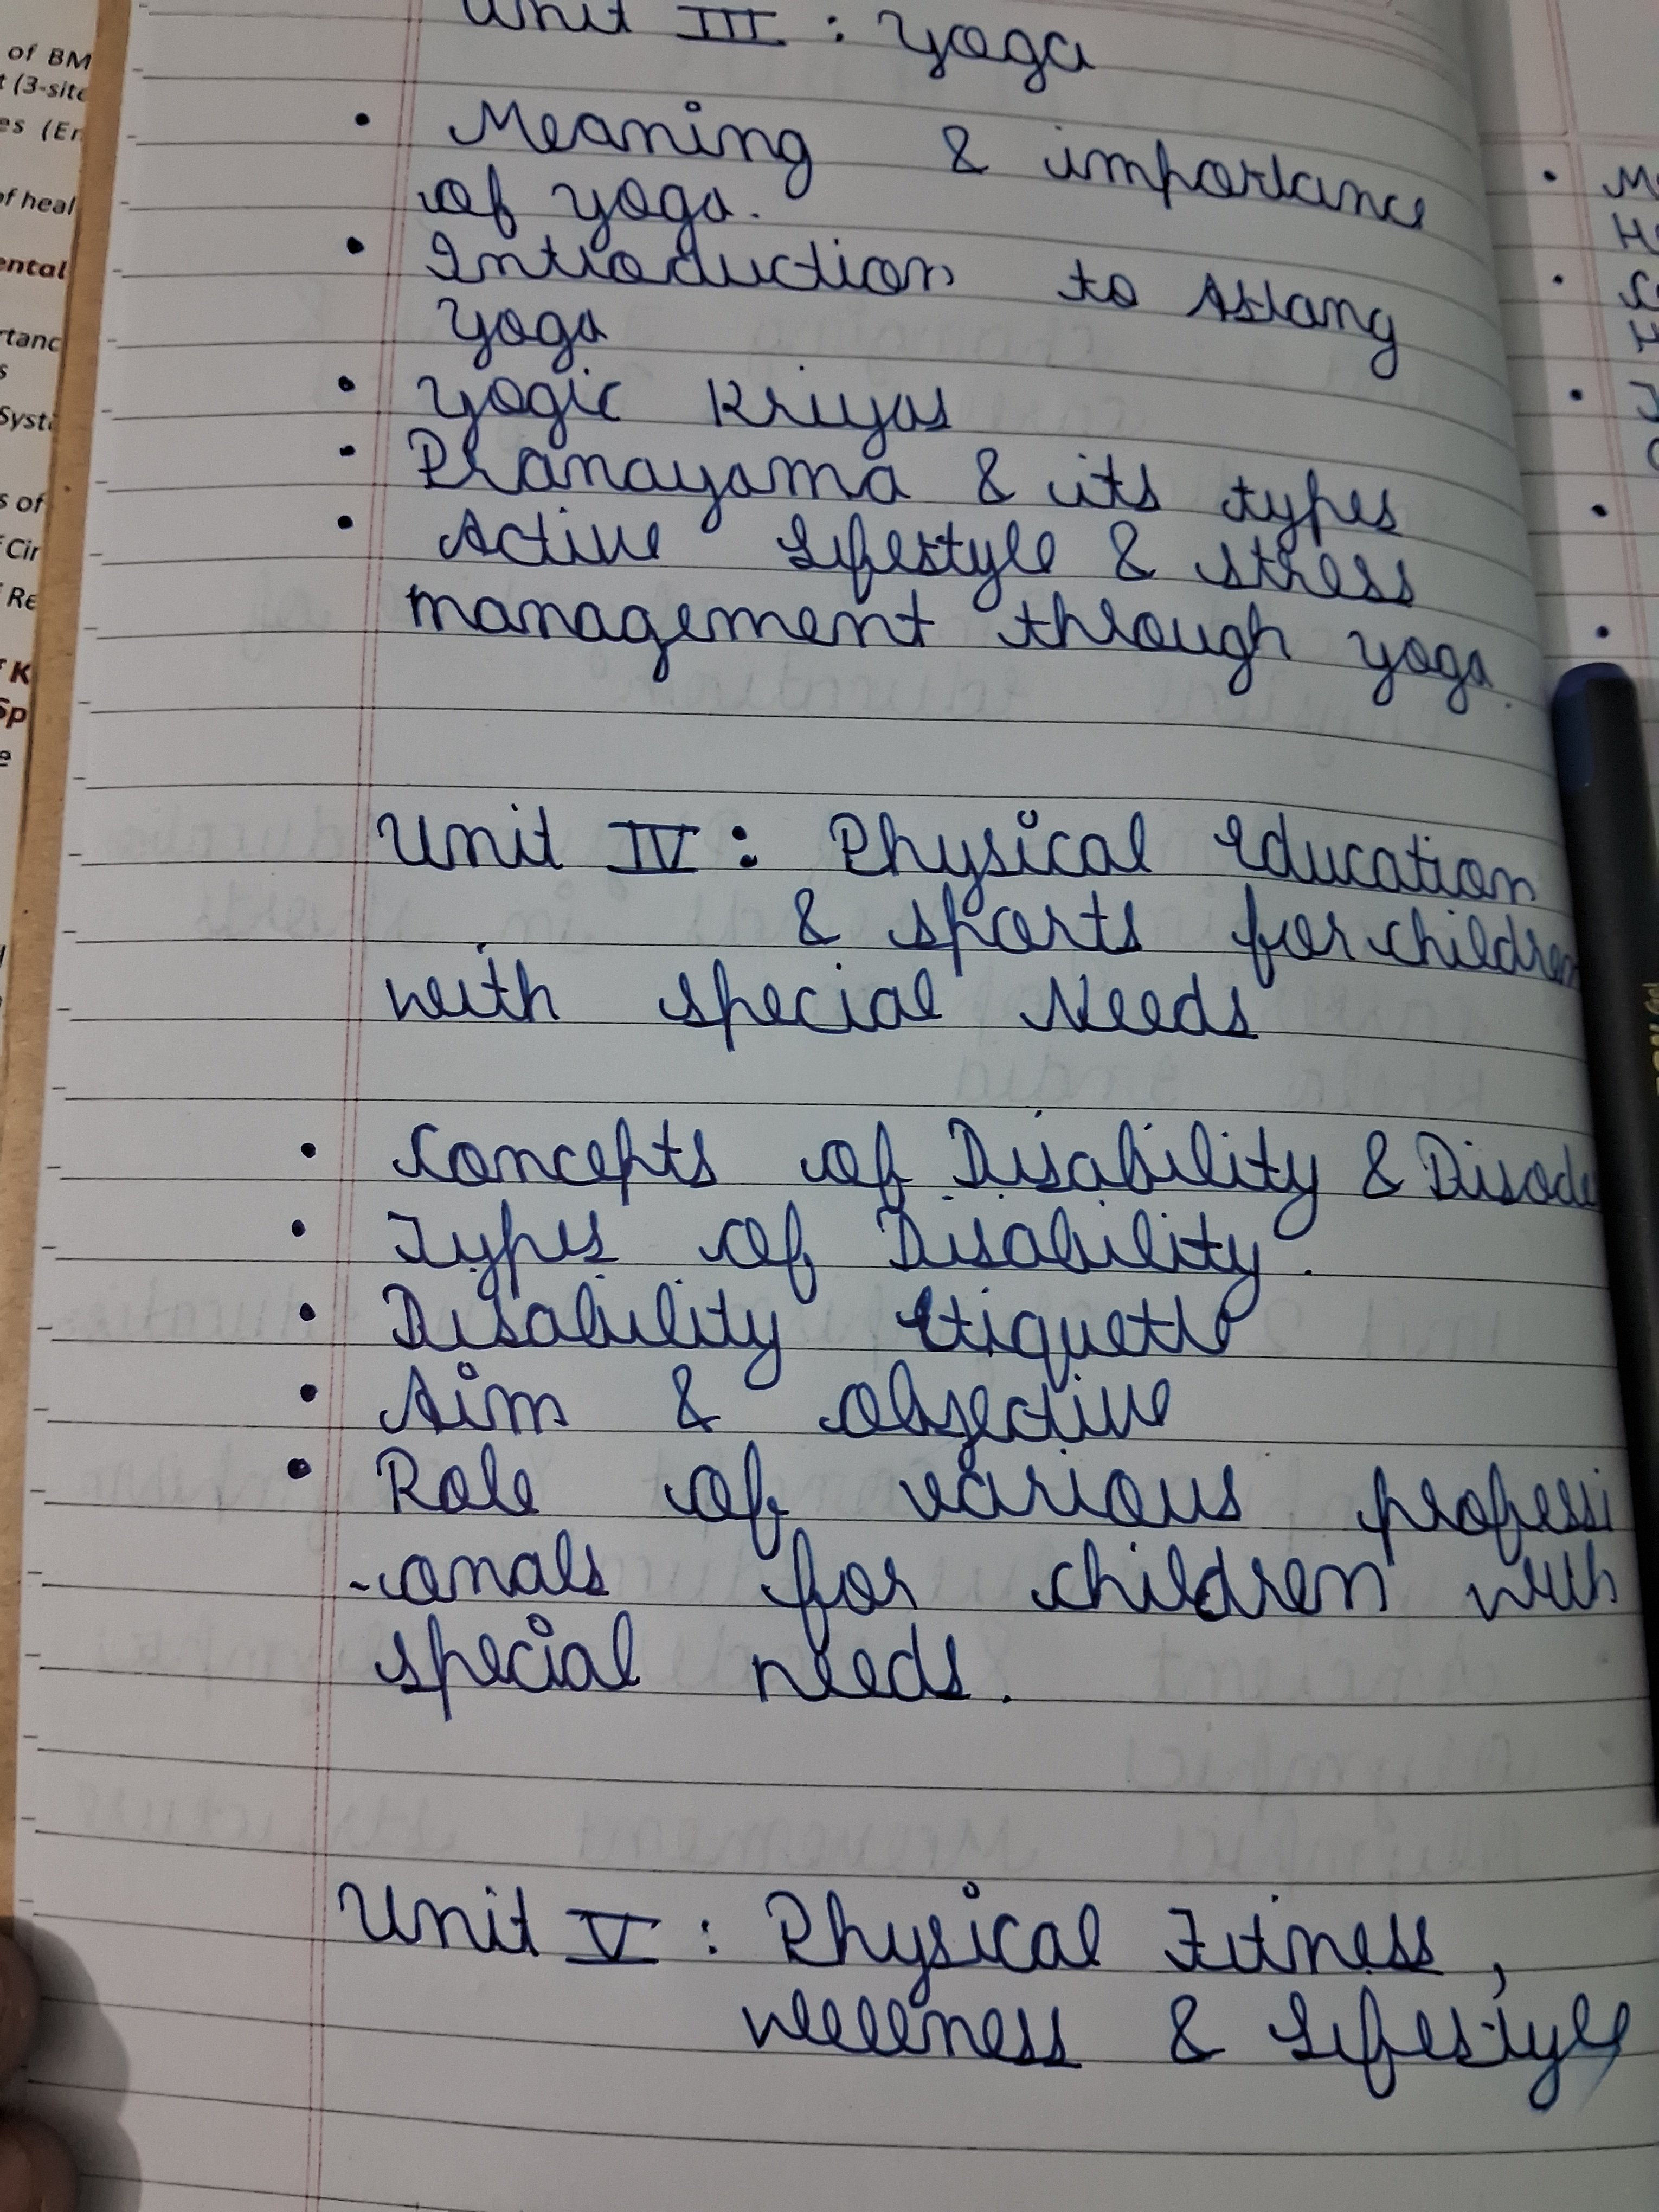 of BM
t (3-site
es (En
of heal
ental
rtanc
s
Syst
s of
f Cir
f Re
f K
Sp
e
Unit III : Yoga
• Meaning & importance
of yoga.
• Introduction to Astang
Yoga
• Yogic Kriyas
• Pranayama & its types
• Active Lifestyle & stress
management through yoga.
Unit IV : Physical Education
& sports for children
with special Needs
• Concepts of Disability & Disode
• Types of Disability.
• Disability Etiquette
• Aim & objective
• Role of various professi
-onals for children with
special needs.
Unit V : Physical Fitness,
wellness & Lifestyle